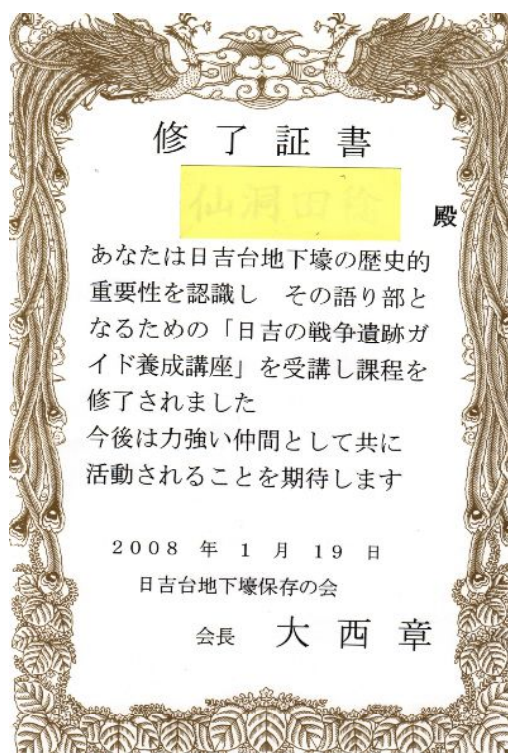 修了証書
殿
あなたは日吉台地下壕の歴史的
重要性を認識し　その語り部と
なるための「日吉の戦争遺跡ガ
イド養成講座」を受講し課程を
修了されました
今後は力強い仲間として共に
活動されることを期待します
2008 年 1 月 19 日
日吉台地下壕保存の会
会長　大西章